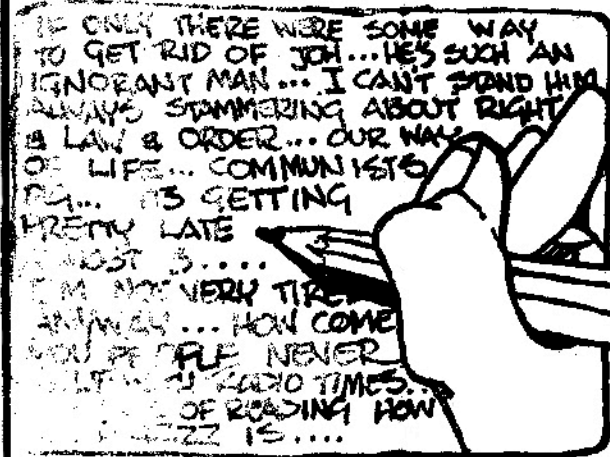 IF ONLY THERE WERE SOME WAY
TO GET RID OF JOH...HE'S SUCH AN
IGNORANT MAN... I CAN'T STAND HIM
ALWAYS STAMMERING ABOUT RIGHT
& LAW & ORDER... OUR WAY
OF LIFE... COMMUNISTS
GETTING
PRETTY LATE
.....
I'M NOT VERY TIRED
ANYWAY... HOW COME
YOU PEOPLE NEVER
RADIO TIMES..
OF READING HOW
IS....